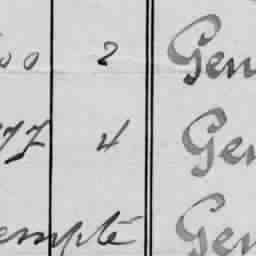 00 2 Gen
77 4 Gen
empté Gen